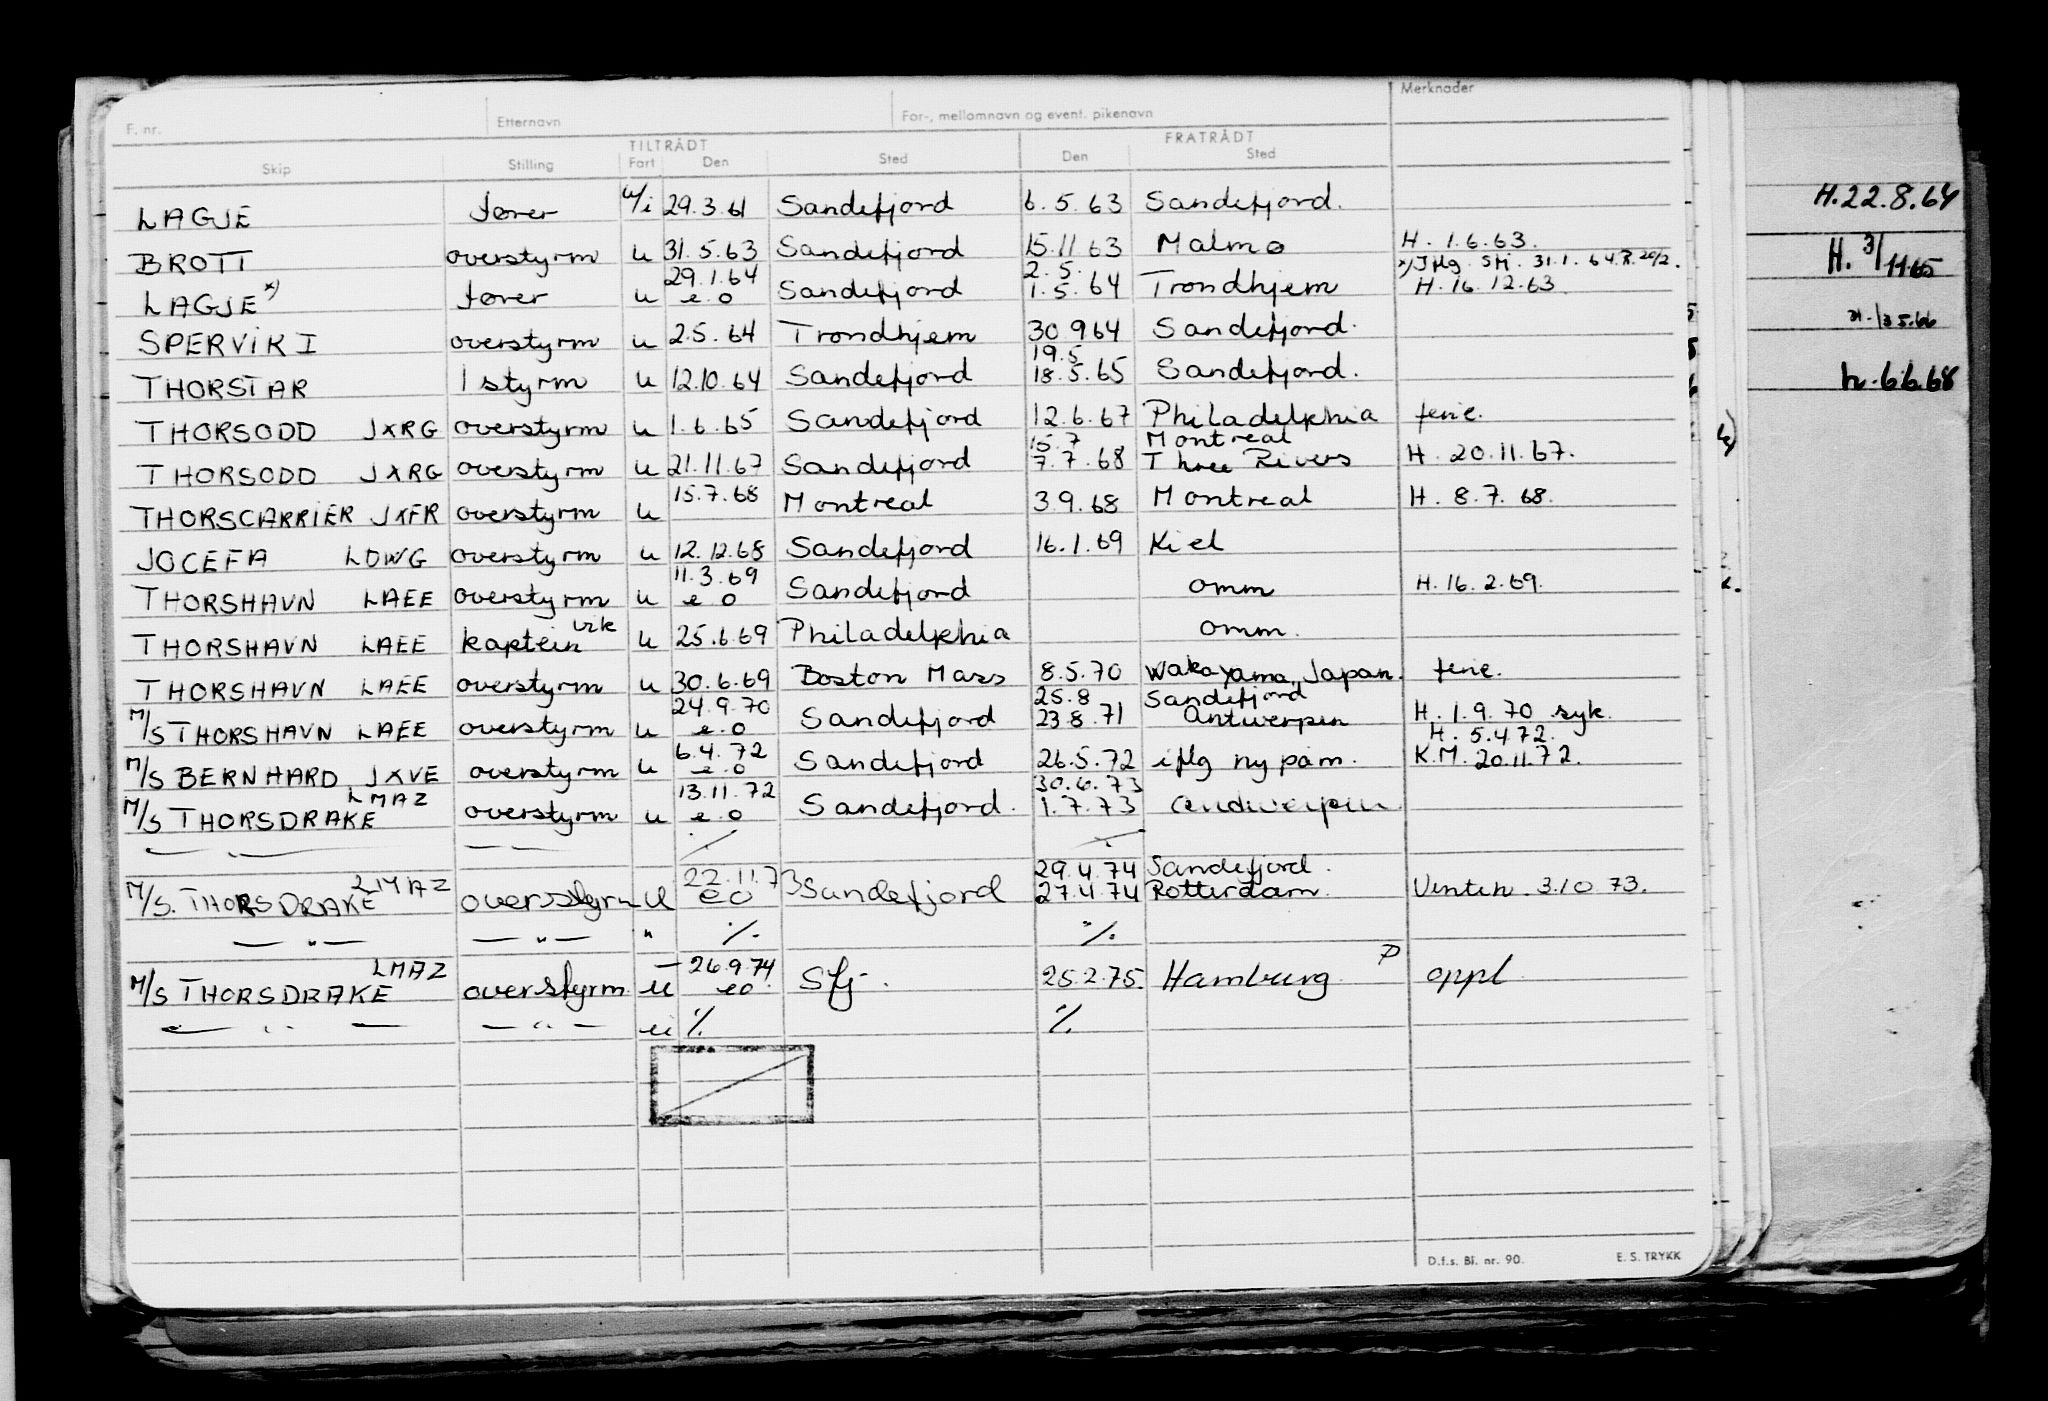 F. nr. Etternavn For-, mellomnavn og event. pikenavn Merknader
TILTRÅDT FRATRÅDT
Skip Stilling Fart Den Sted Den Sted
LAGJE fører u/i 29.3.61 Sandefjord 6.5.63 Sandefjord.
BROTT overstyrm u 31.5.63 Sandefjord 15.11 63 Malmø H. 1.6.63.
29.1.64 2.5. x) Iflg. SM. 31.1.64.R.20/2.
LAGJE x) fører u e.o Sandefjord 1.5.64 Trondhjem H. 16.12.63.
SPERVIK I overstyrm u 2.5.64 Trondhjem 30 9 64 Sandefjord.
19.5
THORSTAR 1 styrm u 12.10.64 Sandefjord 18.5.65 Sandefjord.
THORSODD JXRG overstyrm u 1.6.65 Sandefjord 12.6.67 Philadelphia ferie.
15.7 Montreal
THORSODD JXRG overstyrm u 21.11.67 Sandefjord 7.7.68 Three Rivers H. 20.11.67.
THORSCARRIER JXFR overstyrm u 15.7.68 Montreal 3.9.68 Montreal H. 8.7.68.
JOCEFA LDWG overstyrm u 12.12.68 Sandefjord 16.1.69 Kiel
11.3.69
THORSHAVN LAEE overstyrm u e o Sandefjord omm H. 16.2.69.
THORSHAVN LAEE kaptein vik u 25.6.69 Philadelphia omm.
THORSHAVN LAEE overstyrm u 30.6.69 Boston Mass 8.5.70 Wakayama, Japan. ferie.
24.9.70 25.8 Sandefjord
M/S THORSHAVN LAEE overstyrm u e.o Sandefjord 23.8.71 Antwerpen H. 1.9.70 syk.
6.4.72 H. 5.4.72.
M/S BERNHARD JXVE overstyrm u e.o Sandefjord 26.5.72 iflg ny påm. K.M. 20.11.72.
LMAZ 13.11.72 30.6.73
M/S THORSDRAKE overstyrm u e.o Sandefjord. 1.7.73
— " — — — ./. ./.
LMAZ 22.11.73 29.4.74 Sandefjord.
M/S. THORSDRAKE overstyrm u eo Sandefjord 27.4.74 Rotterdam. 3.10 73.
— " — — " — " ./. ./.
LMAZ 26.9.74
M/S THORSDRAKE overstyrm u eo. Sfj. 25.2.75. Hamburg P oppl
— " — — " — ./. ./.
D.f.s. Bl. nr. 90. E. S. TRYKK
H. 22.8.64
H. 3/11.65
h. 6.6.68